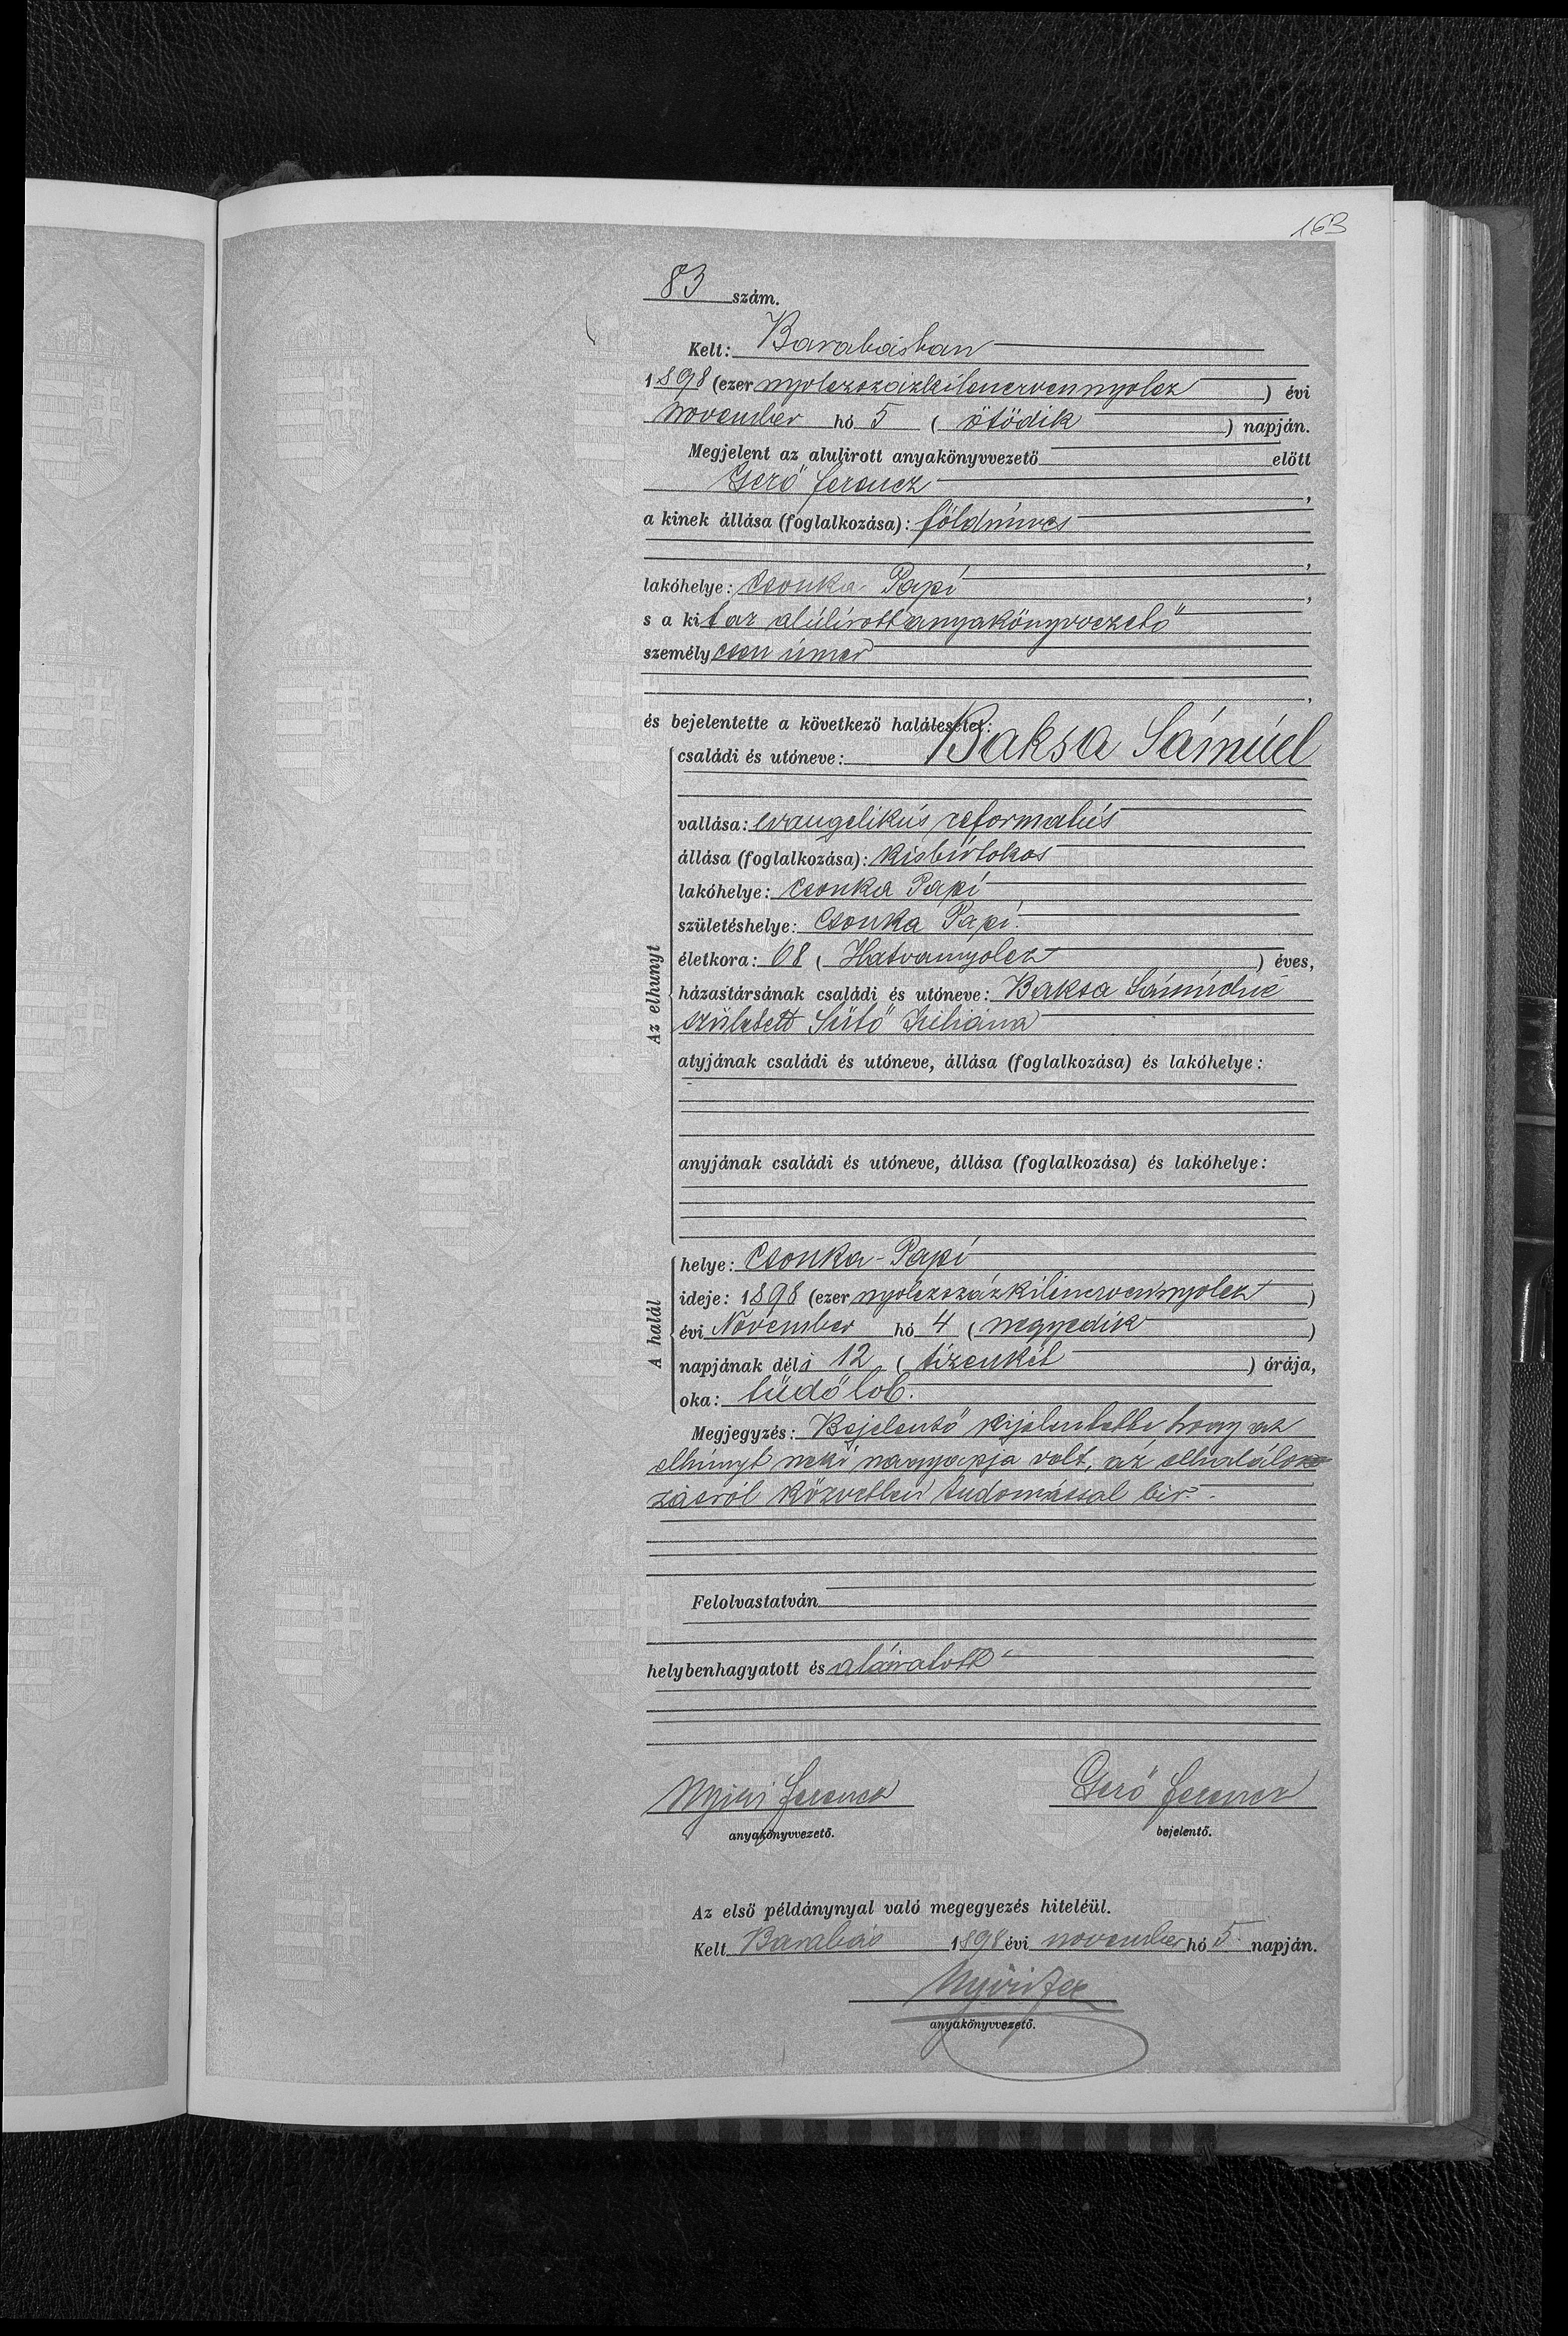 163
83 szám.
Kelt: Barabásban
1898 (ezer nyolczszázkilenczvennyolcz) évi
november hó 5 (ötödik) napján.
Megjelent az alulirott anyakönyvvezető előtt
Gerő Ferencz,
a kinek állása (foglalkozása): földmíves
,
lakóhelye: Csonka Papi,
s a kit az alúlírott anyakönyvvezető
személyesen ismer
,
és bejelentette a következő halálesetet:
Az elhunyt
családi és utóneve: Baksa Sámúel
vallása: evangelikús reformatús
állása (foglalkozása): kisbirtokos
lakóhelye: Csonka Papi
születéshelye: Csonka Papi
életkora: 68 (Hatvannyolcz) éves,
házastársának családi és utóneve: Baksa Sámúelné
született Sütő Juliána
atyjának családi és utóneve, állása (foglalkozása) és lakóhelye:
anyjának családi és utóneve, állása (foglalkozása) és lakóhelye:
A halál
helye: Csonka-Papi
ideje: 1898 (ezer nyolczszázkilenczvennyolcz)
évi November hó 4 (negyedik)
napjának déli 12 (tizenkét) órája,
oka: tüdőlob.
Megjegyzés: Bejelentő kijelentette, hogy az
elhúnyt neki nagyapja volt, az elhaláloz
zásról közvetlen tudomással bir.
Felolvastatván
helybenhagyatott és aláiratott
Nyiri Ferencz Gerő Ferencz
anyakönyvvezető. bejelentő.
Az első példánynyal való megegyezés hiteléül.
Kelt Barabás 1898 évi november hó 5. napján.
Nyiri Fer
anyakönyvvezető.